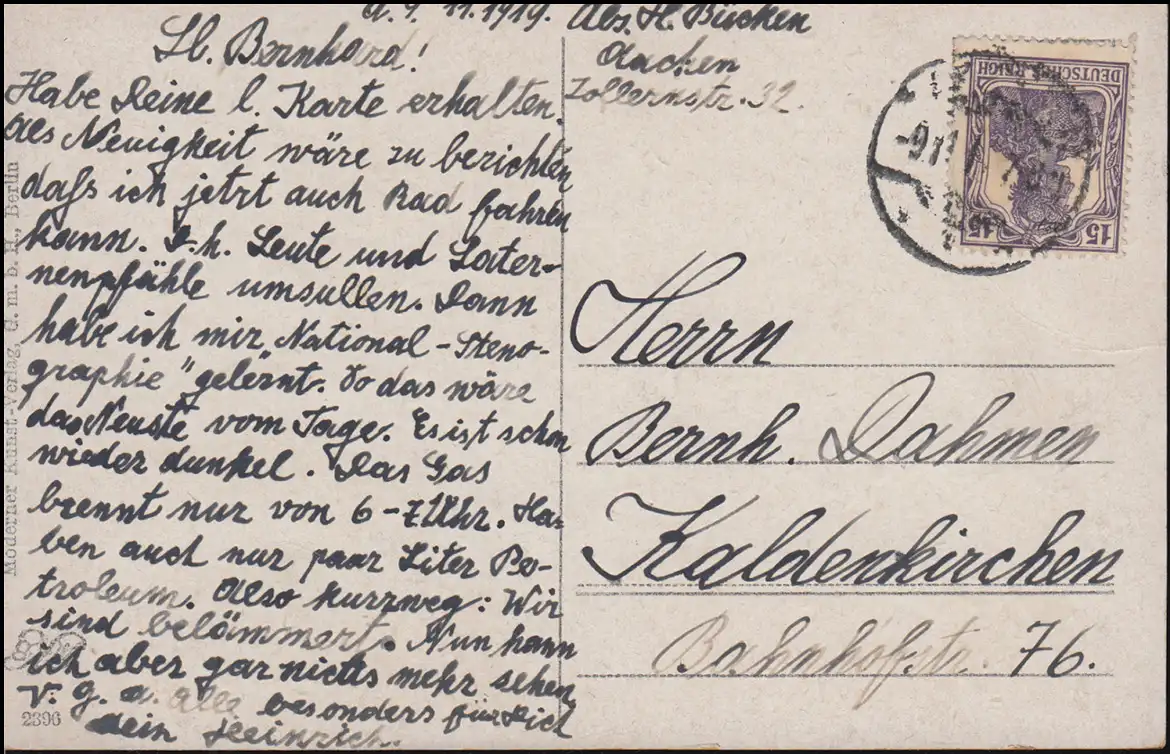 A. 9. 11. 1919.
Lb. Bernhard!
Habe Deine l. Karte erhalten.
Als Neuigkeit wäre zu berichten
daſs ich jetzt auch Rad fahren
kann. D.h. Leute und Later-
nenpfähle umsullen. Dann
habe ich mir „National-Steno-
graphie" gelernt. So das wäre
das Neuste vom Tage. Es ist schon
wieder dunkel. Das Gas
brennt nur von 6-7 Uhr. Ha-
ben auch nur paar Liter Pe-
troleum. Also kurzweg: Wir
sind belämmert. Nun kann
ich aber gar nichts mehr sehen
V. g. a. alle besonders für Dich
dein Heinrich.
Abs. H. Bücken
Aachen
Zollernstr. 32.
DEUTSCHES REICH
15 15
Herrn
Bernh. Dahmen
Kaldenkirchen
Bahnhofstr. 76.
Moderner Kunst-Verlag, G. m. b. H., Berlin
2396